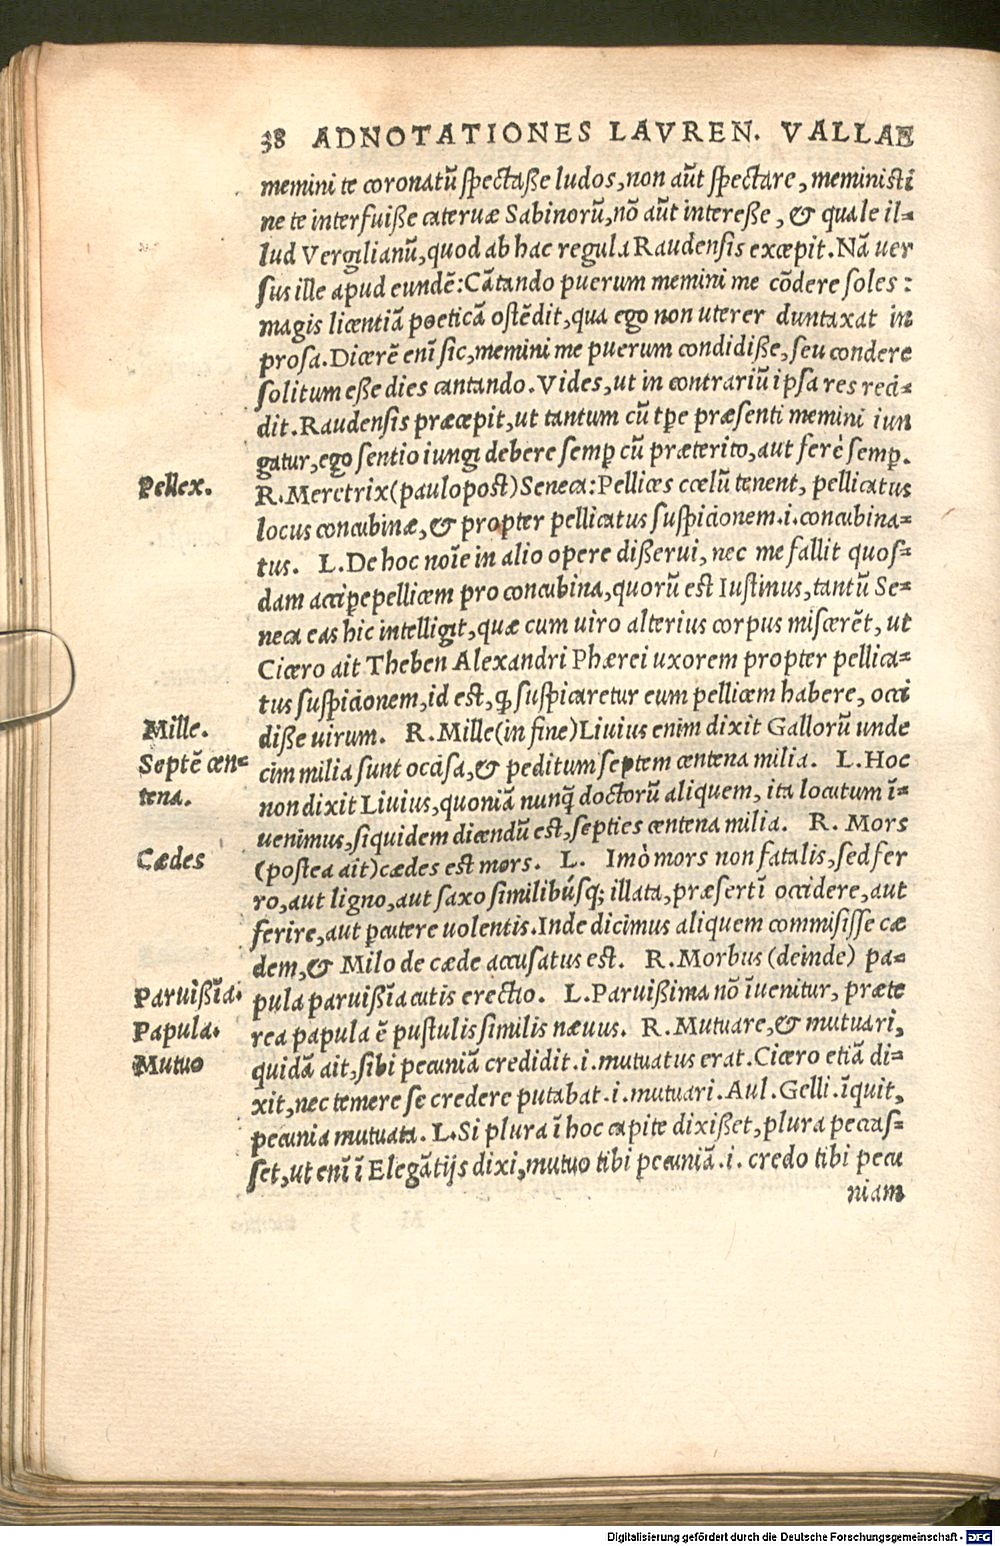 38 ADNOTATIONES LAVREN. VALLAE
memini te coronatũ spectaße ludos, non aũt spectare, meministi
ne te interfuiße cateruæ Sabinorũ, nõ aũt intereße, & quale il-
lud Vergilianũ, quod ab hac regula Raudensis excæpit. Nã uer
sus ille apud eundẽ: Cãtando puerum memini me cõdere soles:
magis licentiã poeticã ostẽdit, qua ego non uterer duntaxat in
prosa. Dicerẽ enĩ sic, memini me puerum condidiße, seu condere
solitum eße dies cantando. Vides, ut in contrariũ ipsa res reci-
dit. Raudensis præcepit, ut tantum cũ tp̃e præsenti memini iun
gatur, ego sentio iungi debere semp̱ cũ præterito, aut ferè semp̱.
Pellex.
R. Meretrix (paulo post) Seneca: Pellices cœlũ tenent, pellicatus
locus concubinæ, & propter pellicatus suspicionem .i. concubina-
tus. L. De hoc noĩe in alio opere disserui, nec me fallit quos-
dam accip̱e pellicem pro concubina, quorũ est Iustinus, tantũ Se-
neca eas hic intelligit, quæ cum uiro alterius corpus miscerẽt, ut
Cicero ait Theben Alexandri Phærei uxorem propter pellica-
tus suspicionem, id est, ꝙ suspicaretur eum pellicem habere, occi
Mille.
diße uirum. R. Mille (in fine) Liuius enim dixit Gallorũ unde
Septẽ cen-
cim milia sunt occisa, & peditum septem centena milia. L. Hoc
tena.
non dixit Liuius, quoniã nunq̃ doctorũ aliquem, ita locutum ĩ-
uenimus, siquidem dicendũ est, septies centena milia. R. Mors
Cædes
(postea ait) cædes est mors. L. Imò mors non fatalis, sed fer
ro, aut ligno, aut saxo similibúsq; illata, præsertĩ occidere, aut
ferire, aut p̱cutere uolentis. Inde dicimus aliquem commisisse cæ
dem, & Milo de cæde accusatus est. R. Morbus (deinde) pa-
Paruißĩa.
pula paruißĩa cutis erectio. L. Parvißima nõ ĩuenitur, præte
Papula.
rea papula ẽ pustulis similis næuus. R. Mutuare, & mutuari,
Mutuo
quidã ait, sibi pecuniã credidit .i. mutuatus erat. Cicero etiã di-
xit, nec temere se credere putabat .i. mutuari. Aul. Gelli. ĩquit,
pecunia mutuata. L. Si plura ĩ hoc capite dixißet, plura peccas-
set, ut enĩ ĩ Elegãtijs dixi, mutuo tibi pecuniã .i. credo tibi pecu
niam
Digitalisierung gefördert durch die Deutsche Forschungsgemeinschaft - DFG